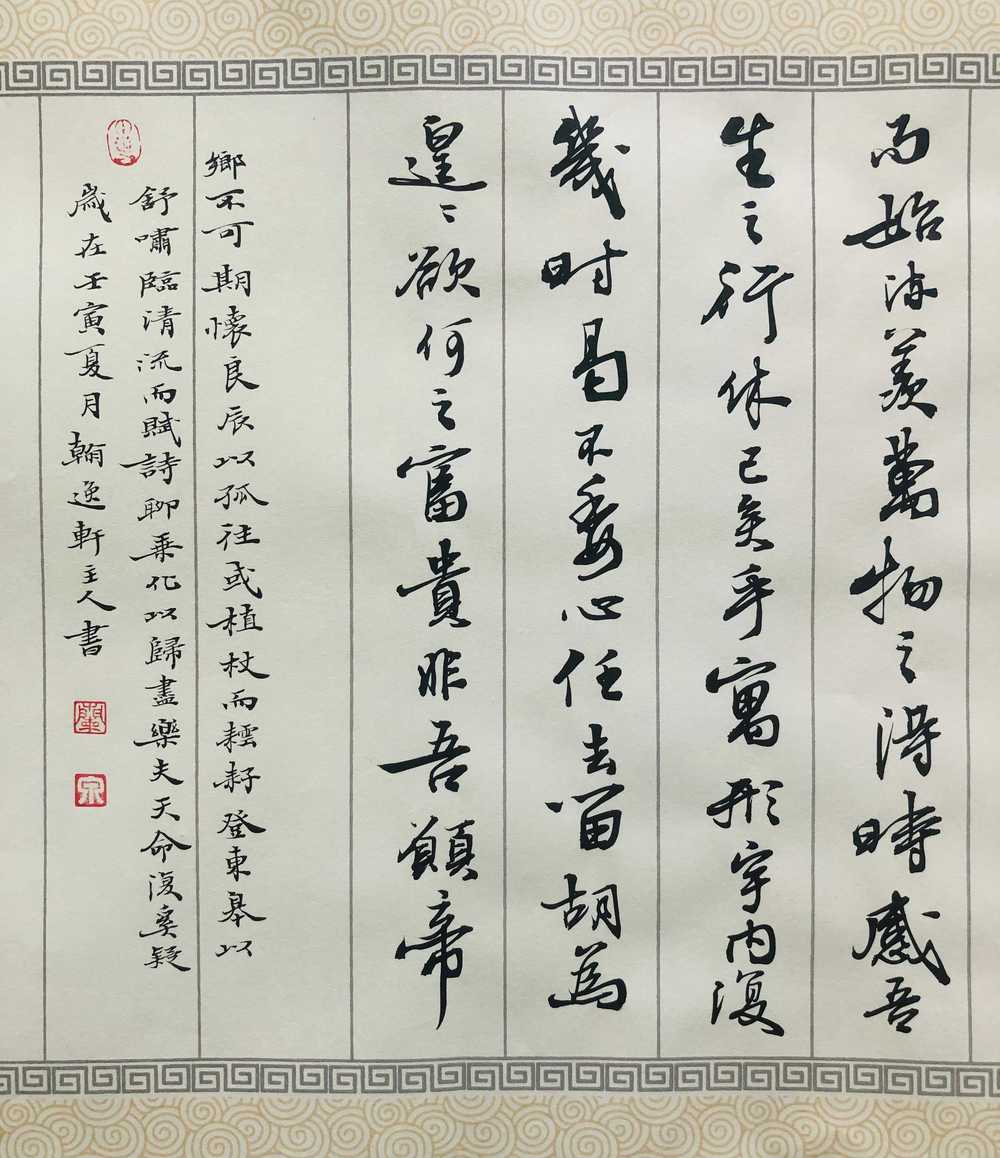 而始流羨萬物之得時感吾
生之行休已矣乎寓形宇内復
幾時曷不委心任去留胡為
遑々欲何之富貴非吾願帝
鄉不可期懷良辰以孤往或植杖而耘耔登東皋以
舒嘯臨清流而賦詩聊乘化以歸盡樂夫天命復奚疑
歲在壬寅夏月翰逸軒主人書